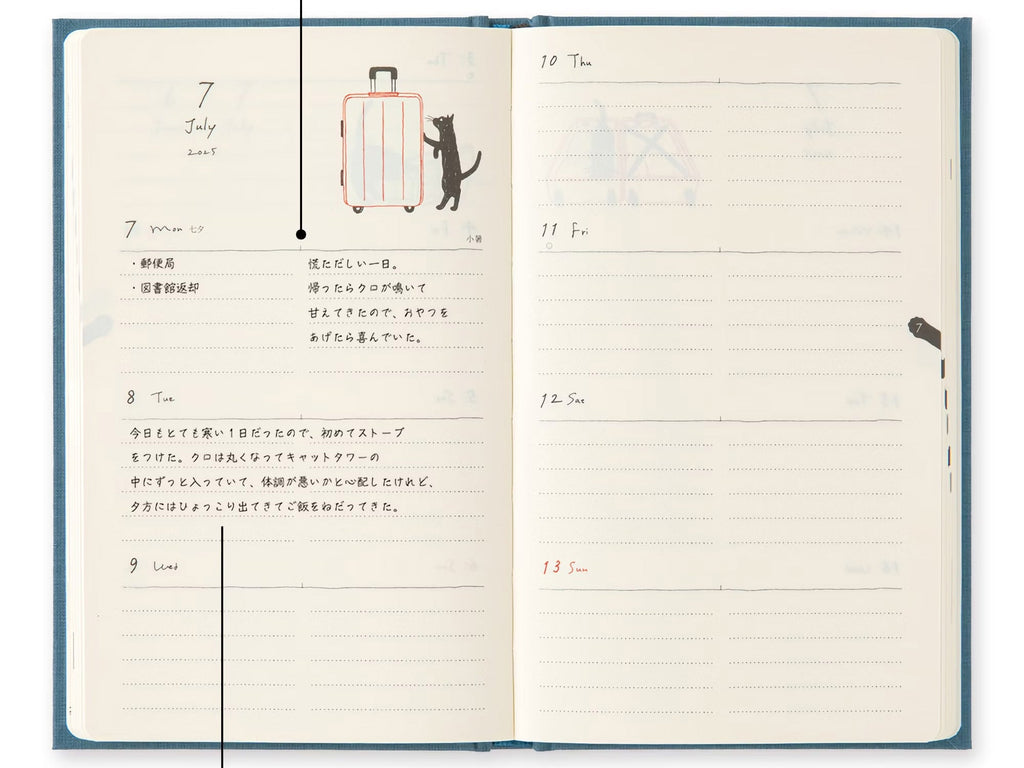 7
July
2025
7 Mon 七夕
小暑
・郵便局
・図書館返却
慌ただしい一日。
帰ったらクロが鳴いて
甘えてきたので、おやつを
あげたら喜んでいた。
8 Tue
今日もとても寒い1日だったので、初めてストーブ
をつけた。クロは丸くなってキャットタワーの
中にずっと入っていて、体調が悪いかと心配したけれど、
夕方にはひょっこり出てきてご飯をねだってきた。
9 Wed
10 Thu
11 Fri
12 Sat
13 Sun
7